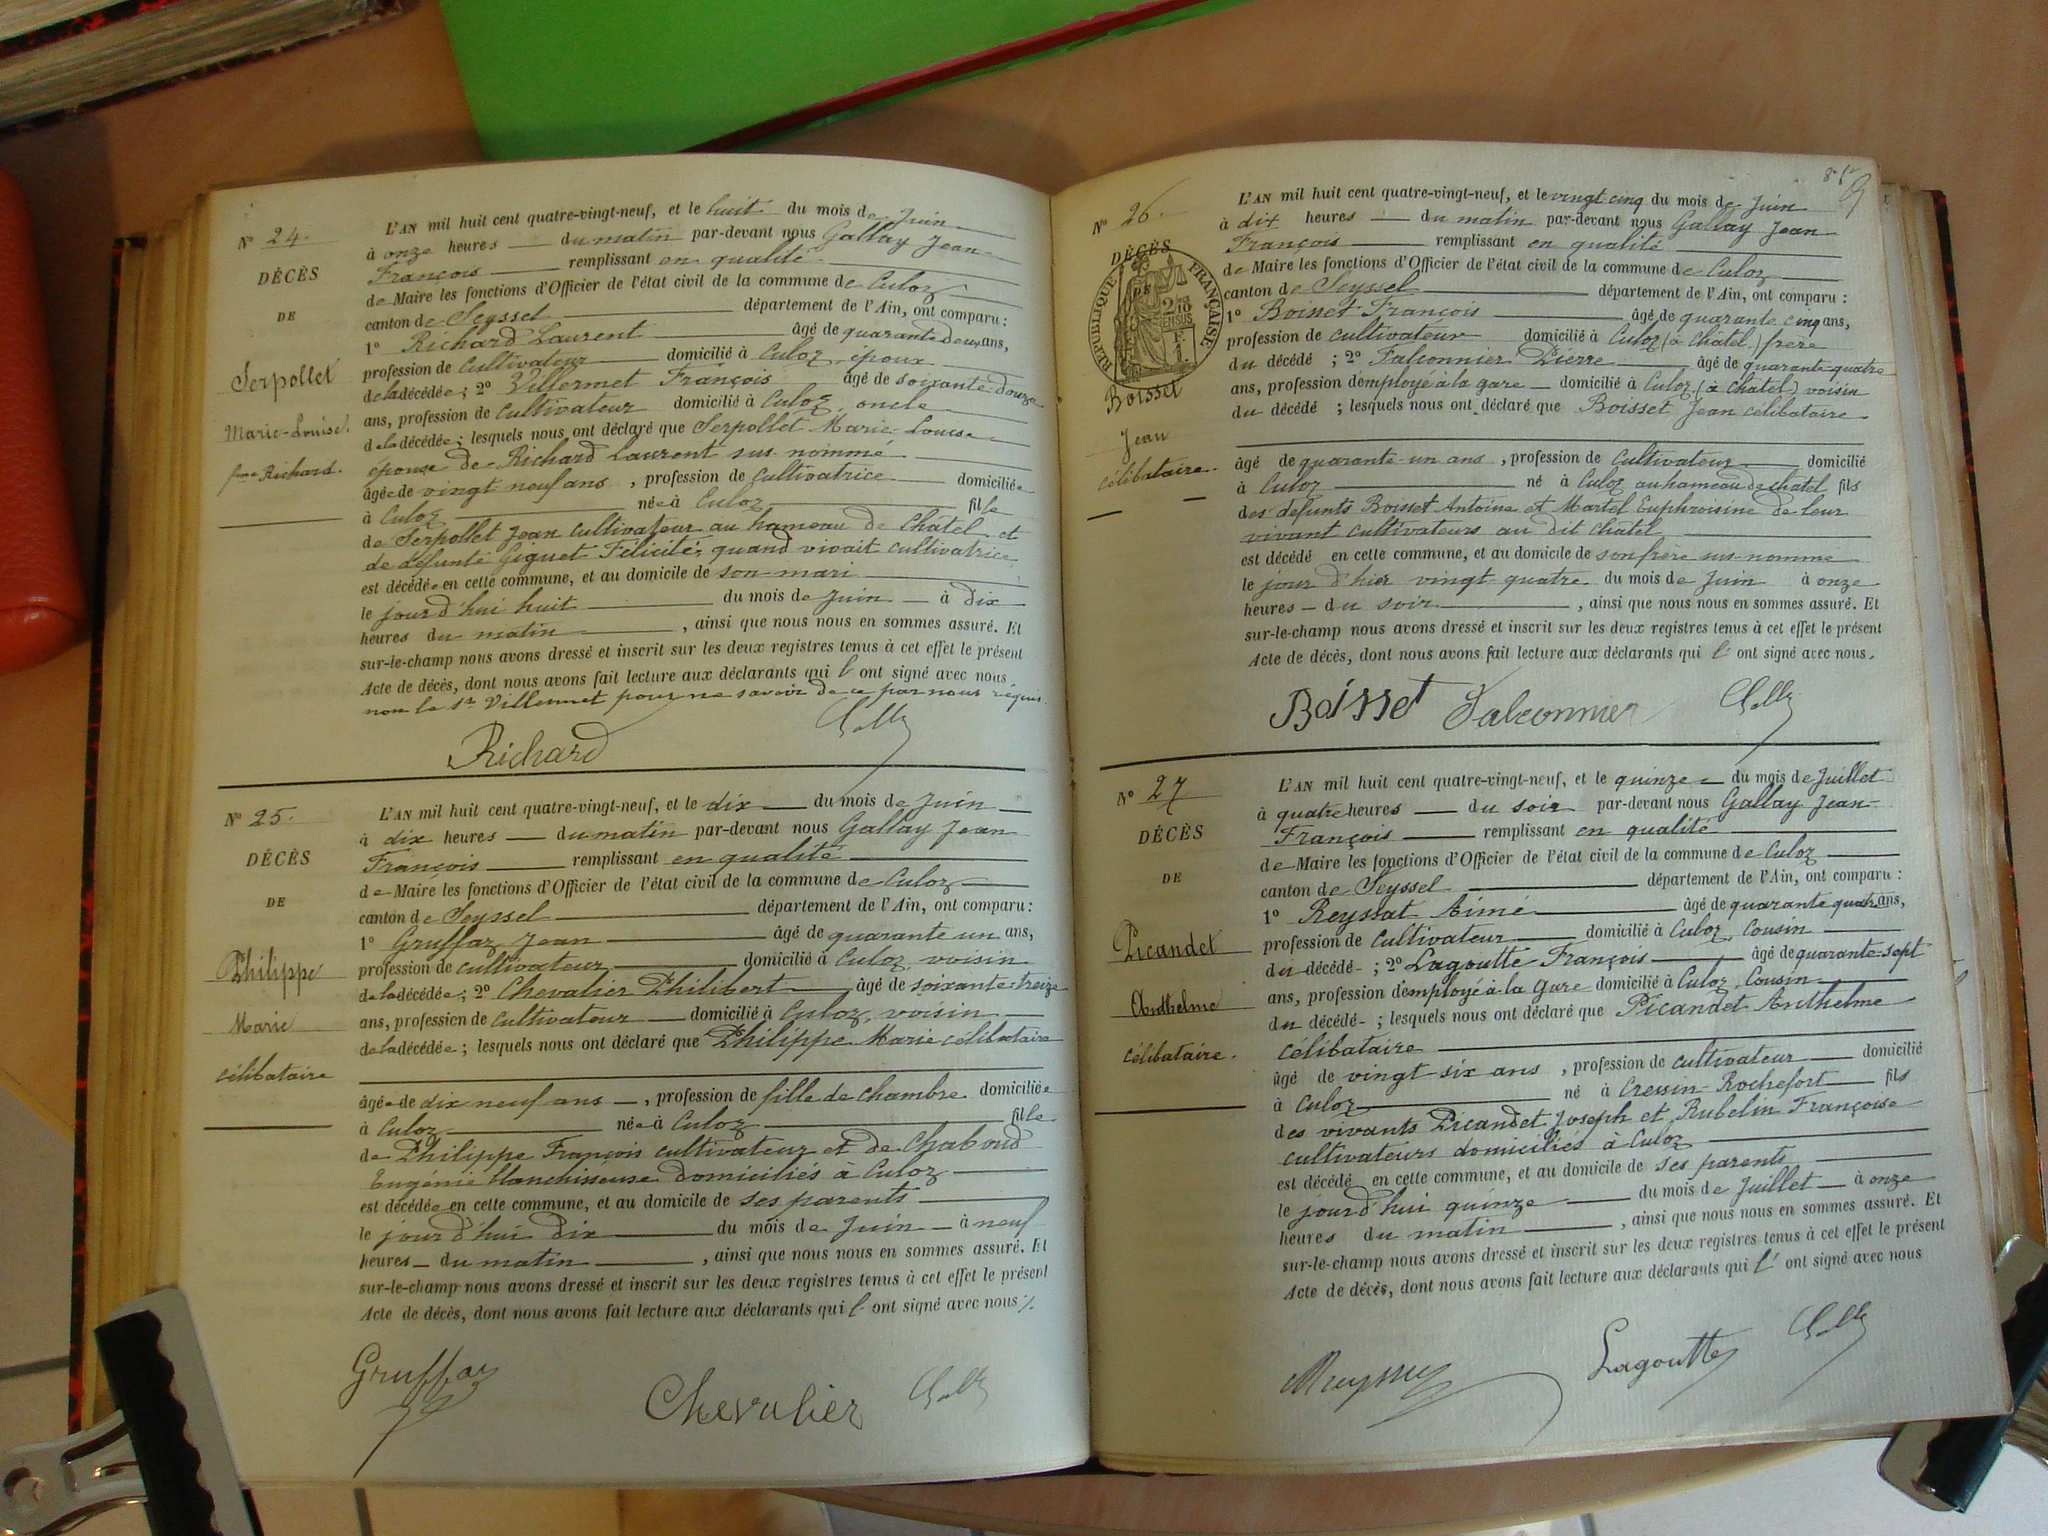 N° 24.
DÉCÈS
DE
Serpollet
Marie-Louise
fme Richard.
L'AN mil huit cent quatre-vingt-neuf, et le huit du mois de Juin
à onze heures du matin par-devant nous Gallay Jean-
François remplissant en qualité
de Maire les fonctions d'Officier de l'état civil de la commune de Culoz
canton de Seyssel département de l'Ain, ont comparu :
1° Richard Laurent âgé de quarante deux ans,
profession de cultivateur domicilié à Culoz, époux
de la décédée ; 2° Villermet François âgé de soixante-douze
ans, profession de cultivateur domicilié à Culoz, oncle
de la décédée ; lesquels nous ont déclaré que Serpollet Marie-Louise
épouse de Richard Laurent sus-nommé
âgée de vingt neuf ans, profession de cultivatrice domiciliée
à Culoz née à Culoz fille
de Serpollet Jean cultivateur au hameau de Châtel et
de défunte Giguet Félicité, quand vivait cultivatrice
est décédée en cette commune, et au domicile de son mari
le jourd'hui huit du mois de Juin à dix
heures du matin, ainsi que nous nous en sommes assuré. Et
sur-le-champ nous avons dressé et inscrit sur les deux registres tenus à cet effet le présent
Acte de décès, dont nous avons fait lecture aux déclarants qui l' ont signé avec nous
non le Sr Villermet pour ne savoir de ce par nous réquis.
Richard
N° 25.
DÉCÈS
DE
Philippe
Marie
célibataire
L'AN mil huit cent quatre-vingt-neuf, et le dix du mois de Juin
à dix heures du matin par-devant nous Gallay Jean
François remplissant en qualité
de Maire les fonctions d'Officier de l'état civil de la commune de Culoz
canton de Seyssel département de l'Ain, ont comparu :
1° Gruffaz Jean âgé de quarante un ans,
profession de cultivateur domicilié à Culoz, voisin
de la décédée ; 2° Chevalier Philibert âgé de soixante-treize
ans, profession de cultivateur domicilié à Culoz, voisin
de la décédée ; lesquels nous ont déclaré que Philippe Marie célibataire
âgée de dix neuf ans, profession de fille de chambre domiciliée
à Culoz née à Culoz fille
de Philippe François cultivateur et de Chaboud
Eugénie blanchisseuse domiciliés à Culoz
est décédée en cette commune, et au domicile de ses parents
le jourd'hui dix du mois de Juin à neuf
heures du matin, ainsi que nous nous en sommes assuré. Et
sur-le-champ nous avons dressé et inscrit sur les deux registres tenus à cet effet le présent
Acte de décès, dont nous avons fait lecture aux déclarants qui l' ont signé avec nous
Gruffaz
Chevalier
N° 26.
DÉCÈS
RÉPUBLIQUE FRANÇAISE
Boisset
Jean
célibataire.
L'AN mil huit cent quatre-vingt-neuf, et le vingt cinq du mois de Juin
à dix heures du matin par-devant nous Gallay Jean
François remplissant en qualité
de Maire les fonctions d'Officier de l'état civil de la commune de Culoz
canton de Seyssel département de l'Ain, ont comparu :
1° Boisset François âgé de quarante cinq ans,
profession de cultivateur domicilié à Culoz (à châtel) frère
du décédé ; 2° Falconnier Pierre âgé de quarante-quatre
ans, profession d'employé à la gare domicilié à Culoz (à châtel) voisin
du décédé ; lesquels nous ont déclaré que Boisset Jean célibataire
âgé de quarante-un ans, profession de cultivateur domicilié
à Culoz né à Culoz au hameau de châtel fils
des défunts Boisset Antoine et Martel Euphroisine de leur
vivant cultivateurs au dit châtel
est décédé en cette commune, et au domicile de son frère sus-nommé
le jour d'hier vingt-quatre du mois de Juin à onze
heures du soir, ainsi que nous nous en sommes assuré. Et
sur-le-champ nous avons dressé et inscrit sur les deux registres tenus à cet effet le présent
Acte de décès, dont nous avons fait lecture aux déclarants qui l' ont signé avec nous.
Boisset Falconnier
N° 27
DÉCÈS
DE
Picandet
Anthelme
célibataire.
L'AN mil huit cent quatre-vingt-neuf, et le quinze du mois de Juillet
à quatre heures du soir par-devant nous Gallay Jean-
François remplissant en qualité
de Maire les fonctions d'Officier de l'état civil de la commune de Culoz
canton de Seyssel département de l'Ain, ont comparu :
1° Reyssat Aimé âgé de quarante quatre ans,
profession de cultivateur domicilié à Culoz, Cousin
du décédé ; 2° Lagoutte François âgé de quarante-sept
ans, profession d'employé à la Gare domicilié à Culoz, Cousin
du décédé ; lesquels nous ont déclaré que Picandet Anthelme
célibataire
âgé de vingt six ans, profession de cultivateur domicilié
à Culoz né à Cressin-Rochefort fils
des vivants Picandet Joseph et Rubelin Françoise
cultivateurs domiciliés à Culoz
est décédé en cette commune, et au domicile de ses parents
le jourd'hui quinze du mois de Juillet à onze
heures du matin, ainsi que nous nous en sommes assuré. Et
sur-le-champ nous avons dressé et inscrit sur les deux registres tenus à cet effet le présent
Acte de décès, dont nous avons fait lecture aux déclarants qui l' ont signé avec nous
Lagoutte